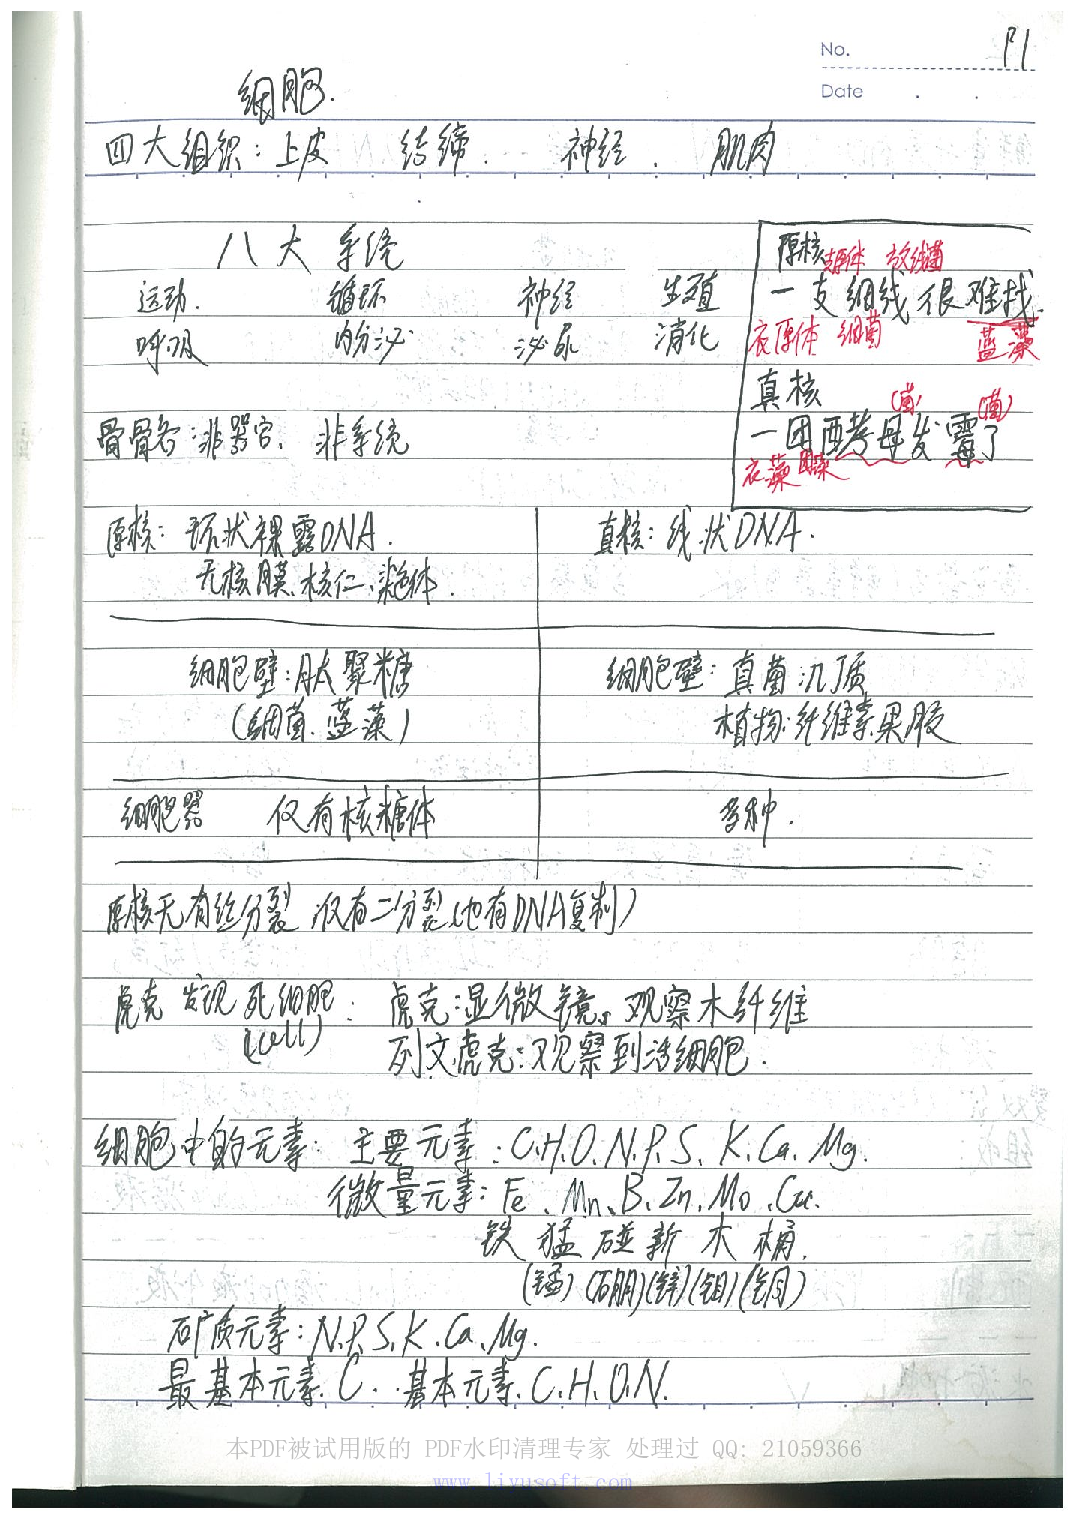 No. P1
Date
细胞.
四大组织: 上皮 结缔. 神经. 肌肉
八大系统
运动. 循环 神经 生殖
呼吸 内分泌 泌尿 消化
骨骼: 非器官. 非系统
原核 支原体 放线菌
一支细线很难找.
衣原体 细菌 蓝藻
真核 (菌) (菌)
一团酵母发霉了
衣藻
原核: 环状裸露DNA. 真核: 线状DNA.
无核膜、核仁、染色体.
细胞壁: 肽聚糖 细胞壁: 真菌:几丁质
(细菌、蓝藻) 植物:纤维素果胶
细胞器 仅有核糖体 多种.
原核无有丝分裂,仅有二分裂(也有DNA复制)
虎克 发现 死细胞. 虎克:显微镜。观察木纤维
(cell) 列文虎克:观察到活细胞.
细胞中的元素: 主要元素: C.H.O.N.P.S、K.Ca.Mg.
微量元素: Fe、Mn、B、Zn、Mo、Cu.
铁 猛 碰 新 木 桶.
(锰) (硼) (锌) (钼) (铜)
矿质元素: N.P.S.K.Ca.Mg.
最基本元素. C. 基本元素. C.H.O.N.
本PDF被试用版的 PDF水印清理专家 处理过 QQ: 21059366
www.liyusoft.com